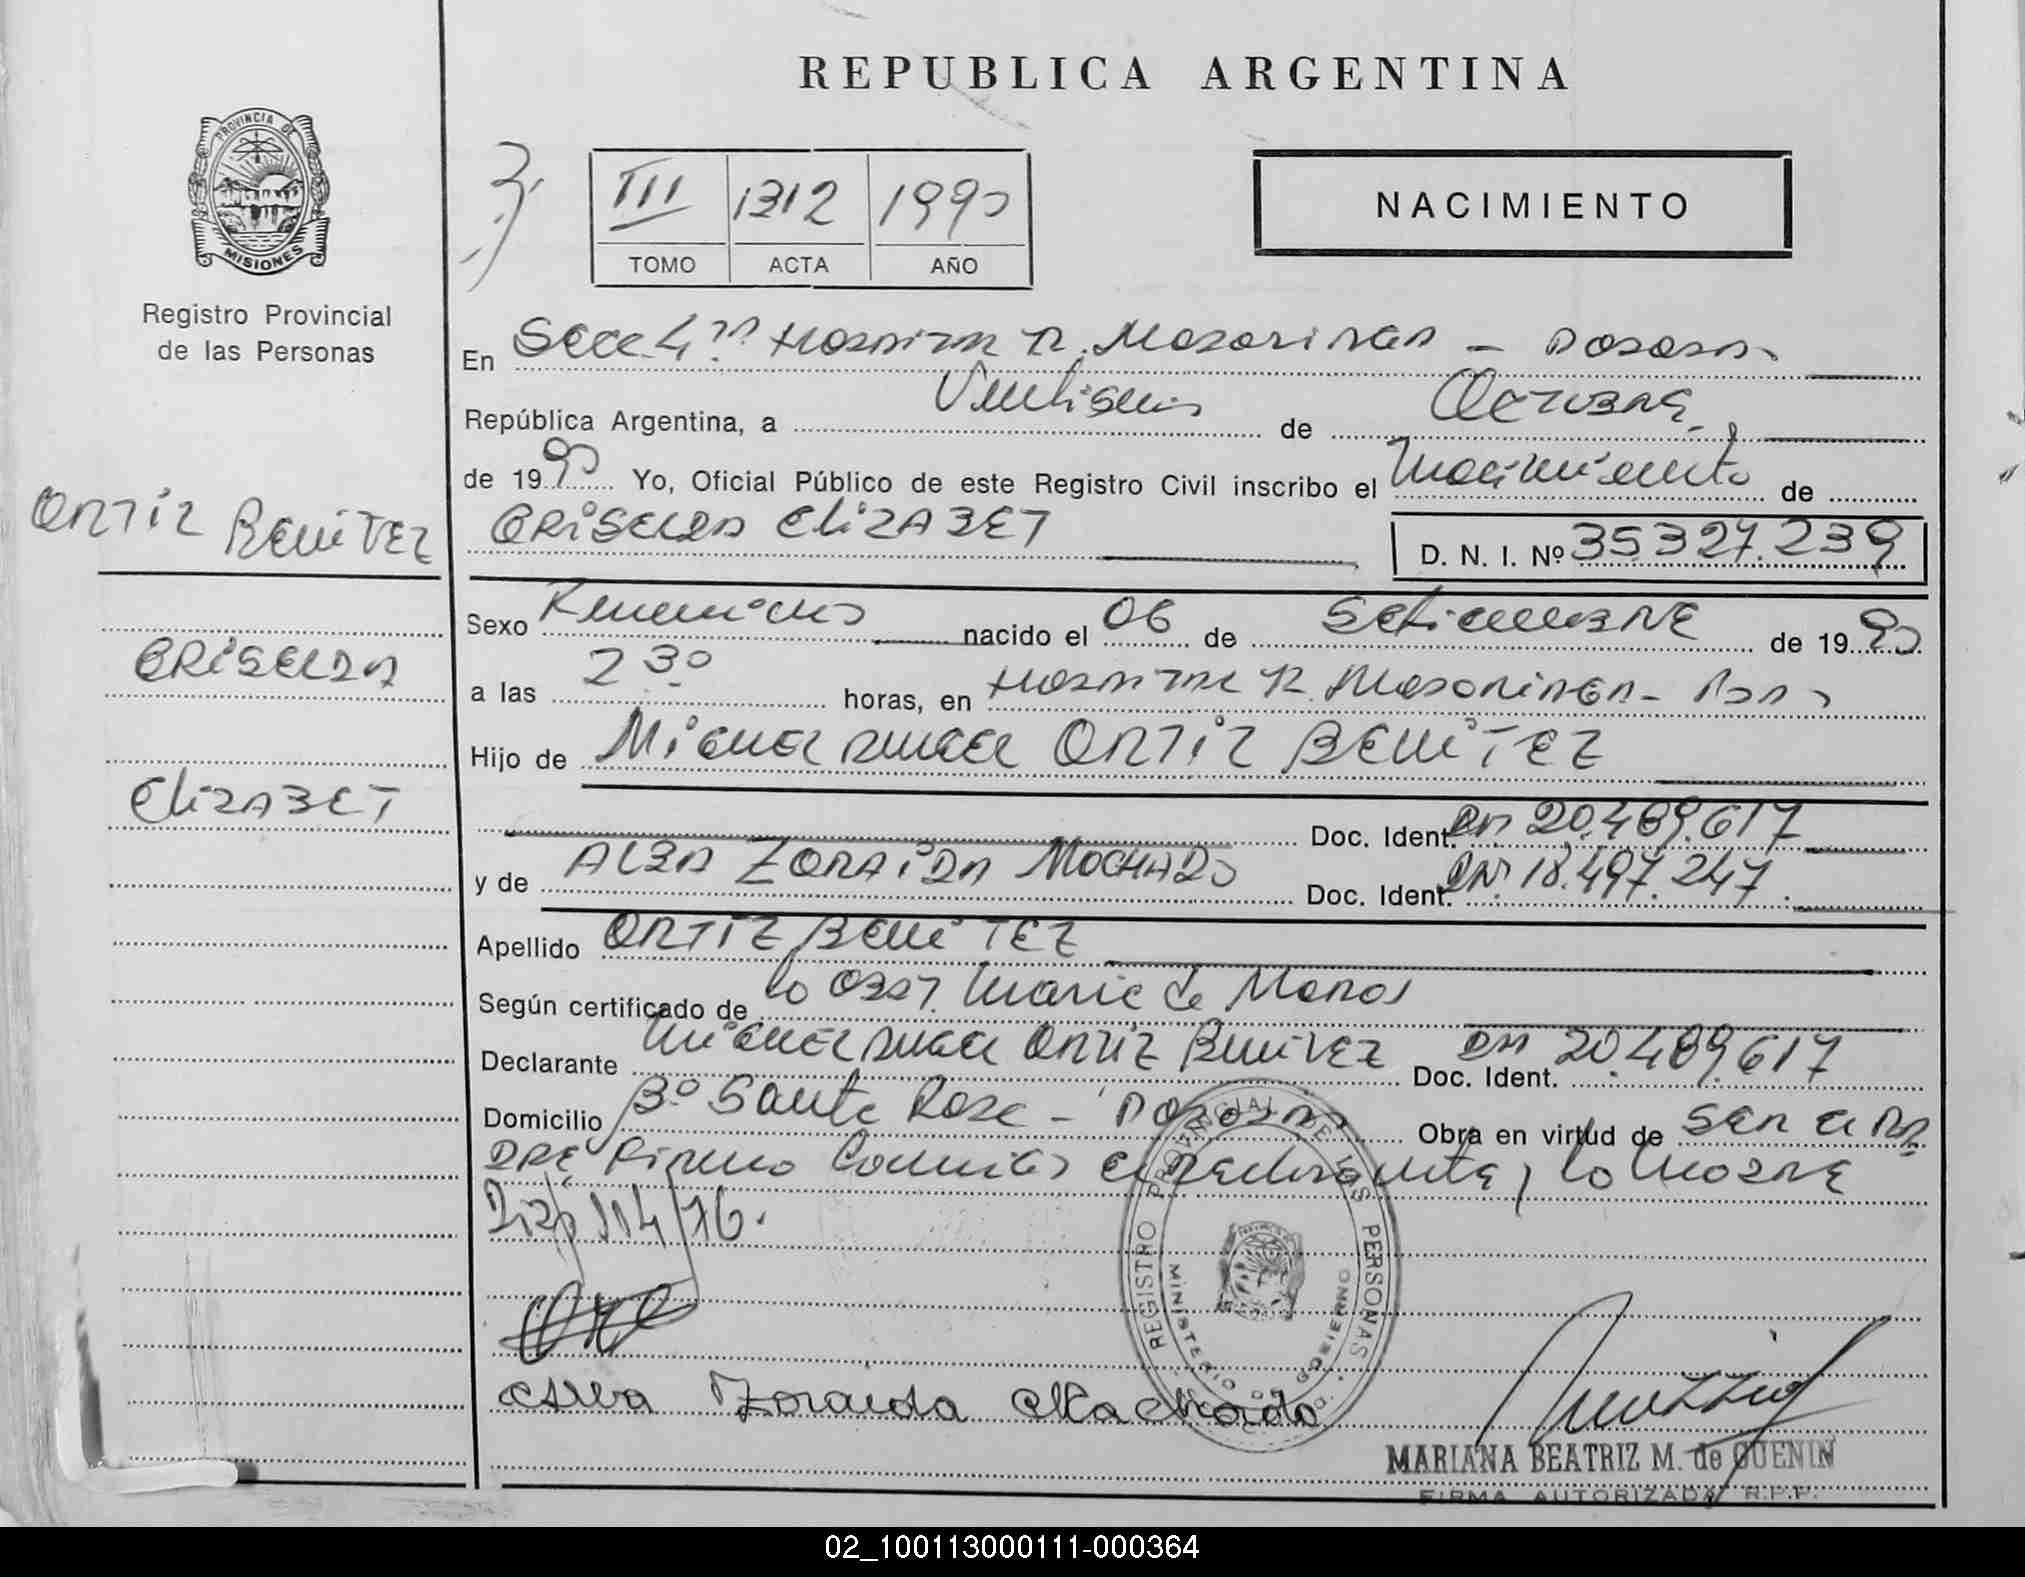 REPUBLICA ARGENTINA
PROVINCIA DE MISIONES
Registro Provincial
de las Personas
III 1312 1990
TOMO ACTA AÑO
NACIMIENTO
En Secc. 4ta Hospital R. Madariaga - Posadas
República Argentina, a Veintiseis de Octubre
de 1990 Yo, Oficial Público de este Registro Civil inscribo el nacimiento de
ORTIZ BENITEZ
GRISELDA ELIZABET D. N. I. Nº 35327.239
Sexo Femenino nacido el 06 de Setiembre de 1990
GRISELDA
a las 23º horas, en Hospital R. Madariaga - Pdas
Hijo de Miguel Angel ORTIZ BENITEZ
ELIZABET
Doc. Ident. DNI 20.489.617
y de ALBA ZORAIDA MACHADO Doc. Ident. DNI 18.497.247
Apellido ORTIZ BENITEZ
Según certificado de la Obst. Maria de
Declarante Miguel Angel Ortiz Benitez Doc. Ident. DNI 20.489.617
Domicilio Bº Santa Rosa - Posadas Obra en virtud de ser el Pa
dre Firman el declarante, la madre
Disp 114/76.
REGISTRO PROVINCIAL DE LAS PERSONAS
MINISTERIO DE GOBIERNO
Alba Zoraida Machado
MARIANA BEATRIZ M. de GUENIN
FIRMA AUTORIZADA R.P.P.
02_100113000111-000364